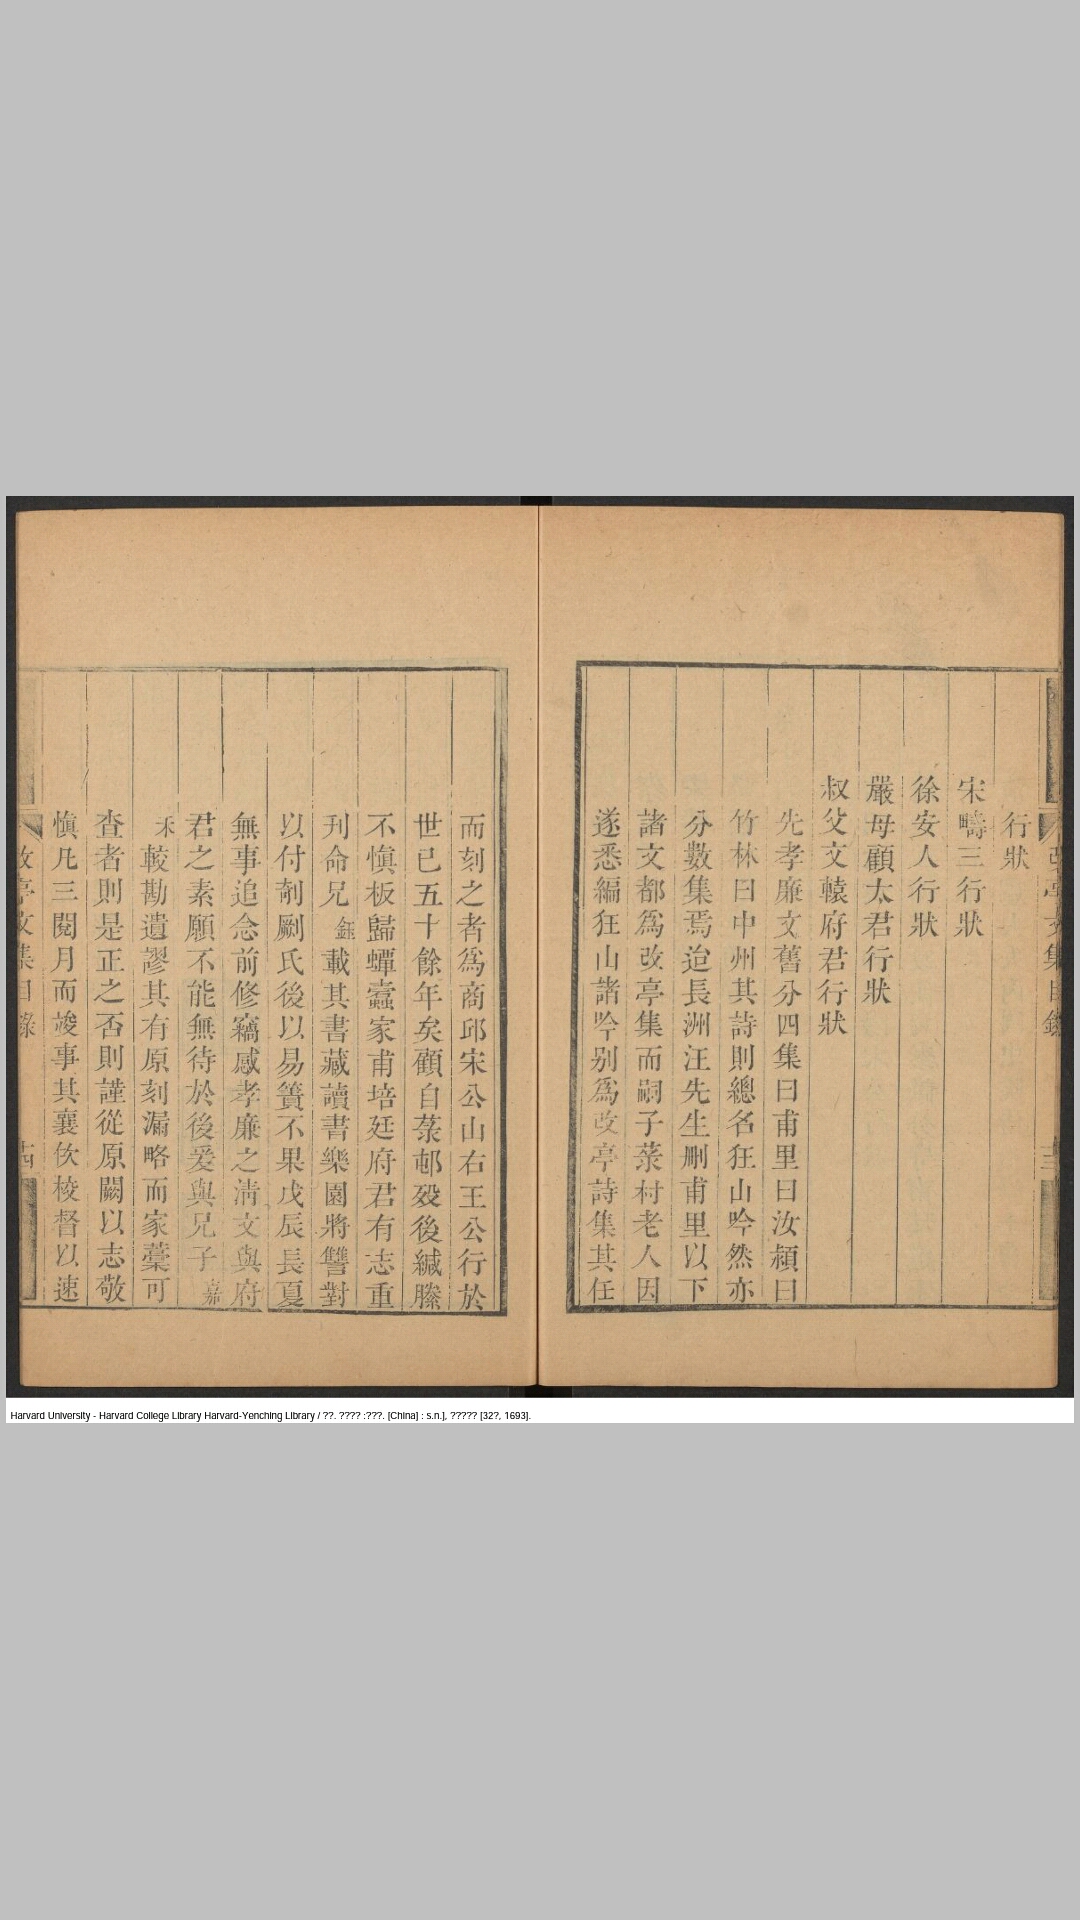 行狀
宋疇三行狀
徐安人行狀
嚴母顧太君行狀
叔父文轅府君行狀
先孝廉文舊分四集曰甫里曰汝潁曰
竹林曰中州其詩則總名狂山吟然亦
分數集焉迨長洲汪先生刪甫里以下
諸文都爲改亭集而嗣子菉村老人因
遂悉編狂山諸吟別爲改亭詩集其任
而刻之者爲商邱宋公山右王公行於
世已五十餘年矣顧自菉邨歿後緘縢
不愼板歸蟫蠹家甫培廷府君有志重
刊命兄鈺載其書藏讀書樂園將讐對
以付剞劂氏後以易簀不果戊辰長夏
無事追念前修竊感孝廉之淸文與府
君之素願不能無待於後爰與兄子嘉
禾較勘遺謬其有原刻漏略而家藁可
查者則是正之否則謹從原闕以志敬
愼凡三閱月而竣事其襄佽梭督以速
改亭文集目錄
Harvard University - Harvard College Library Harvard-Yenching Library / ??. ???? :???. [China] : s.n.], ????? [32?, 1693].